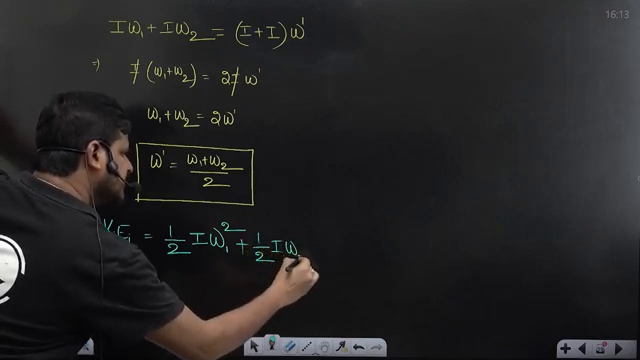 16:13
Iω₁ + Iω₂ = (I + I) ω'
⇒ I (ω₁+ω₂) = 2I ω'
ω₁ + ω₂ = 2ω'
ω' = (ω₁+ω₂)/2
K.Eᵢ = 1/2 Iω₁² + 1/2 Iω